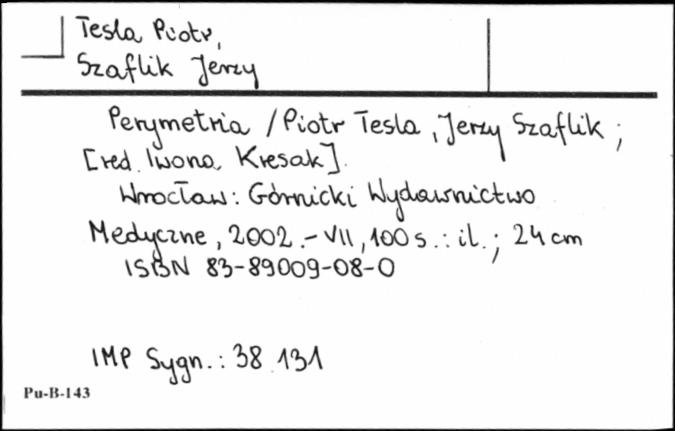 Tesla Piotr,
Szaflik Jerzy
Perymetria / Piotr Tesla, Jerzy Szaflik ;
[red. Iwona Kresak].
Wrocław : Górnicki Wydawnictwo
Medyczne, 2002. - VII, 100 s. : il. ; 24 cm
ISBN 83-89009-08-0
IMP Sygn. : 38 131
Pu-B-143